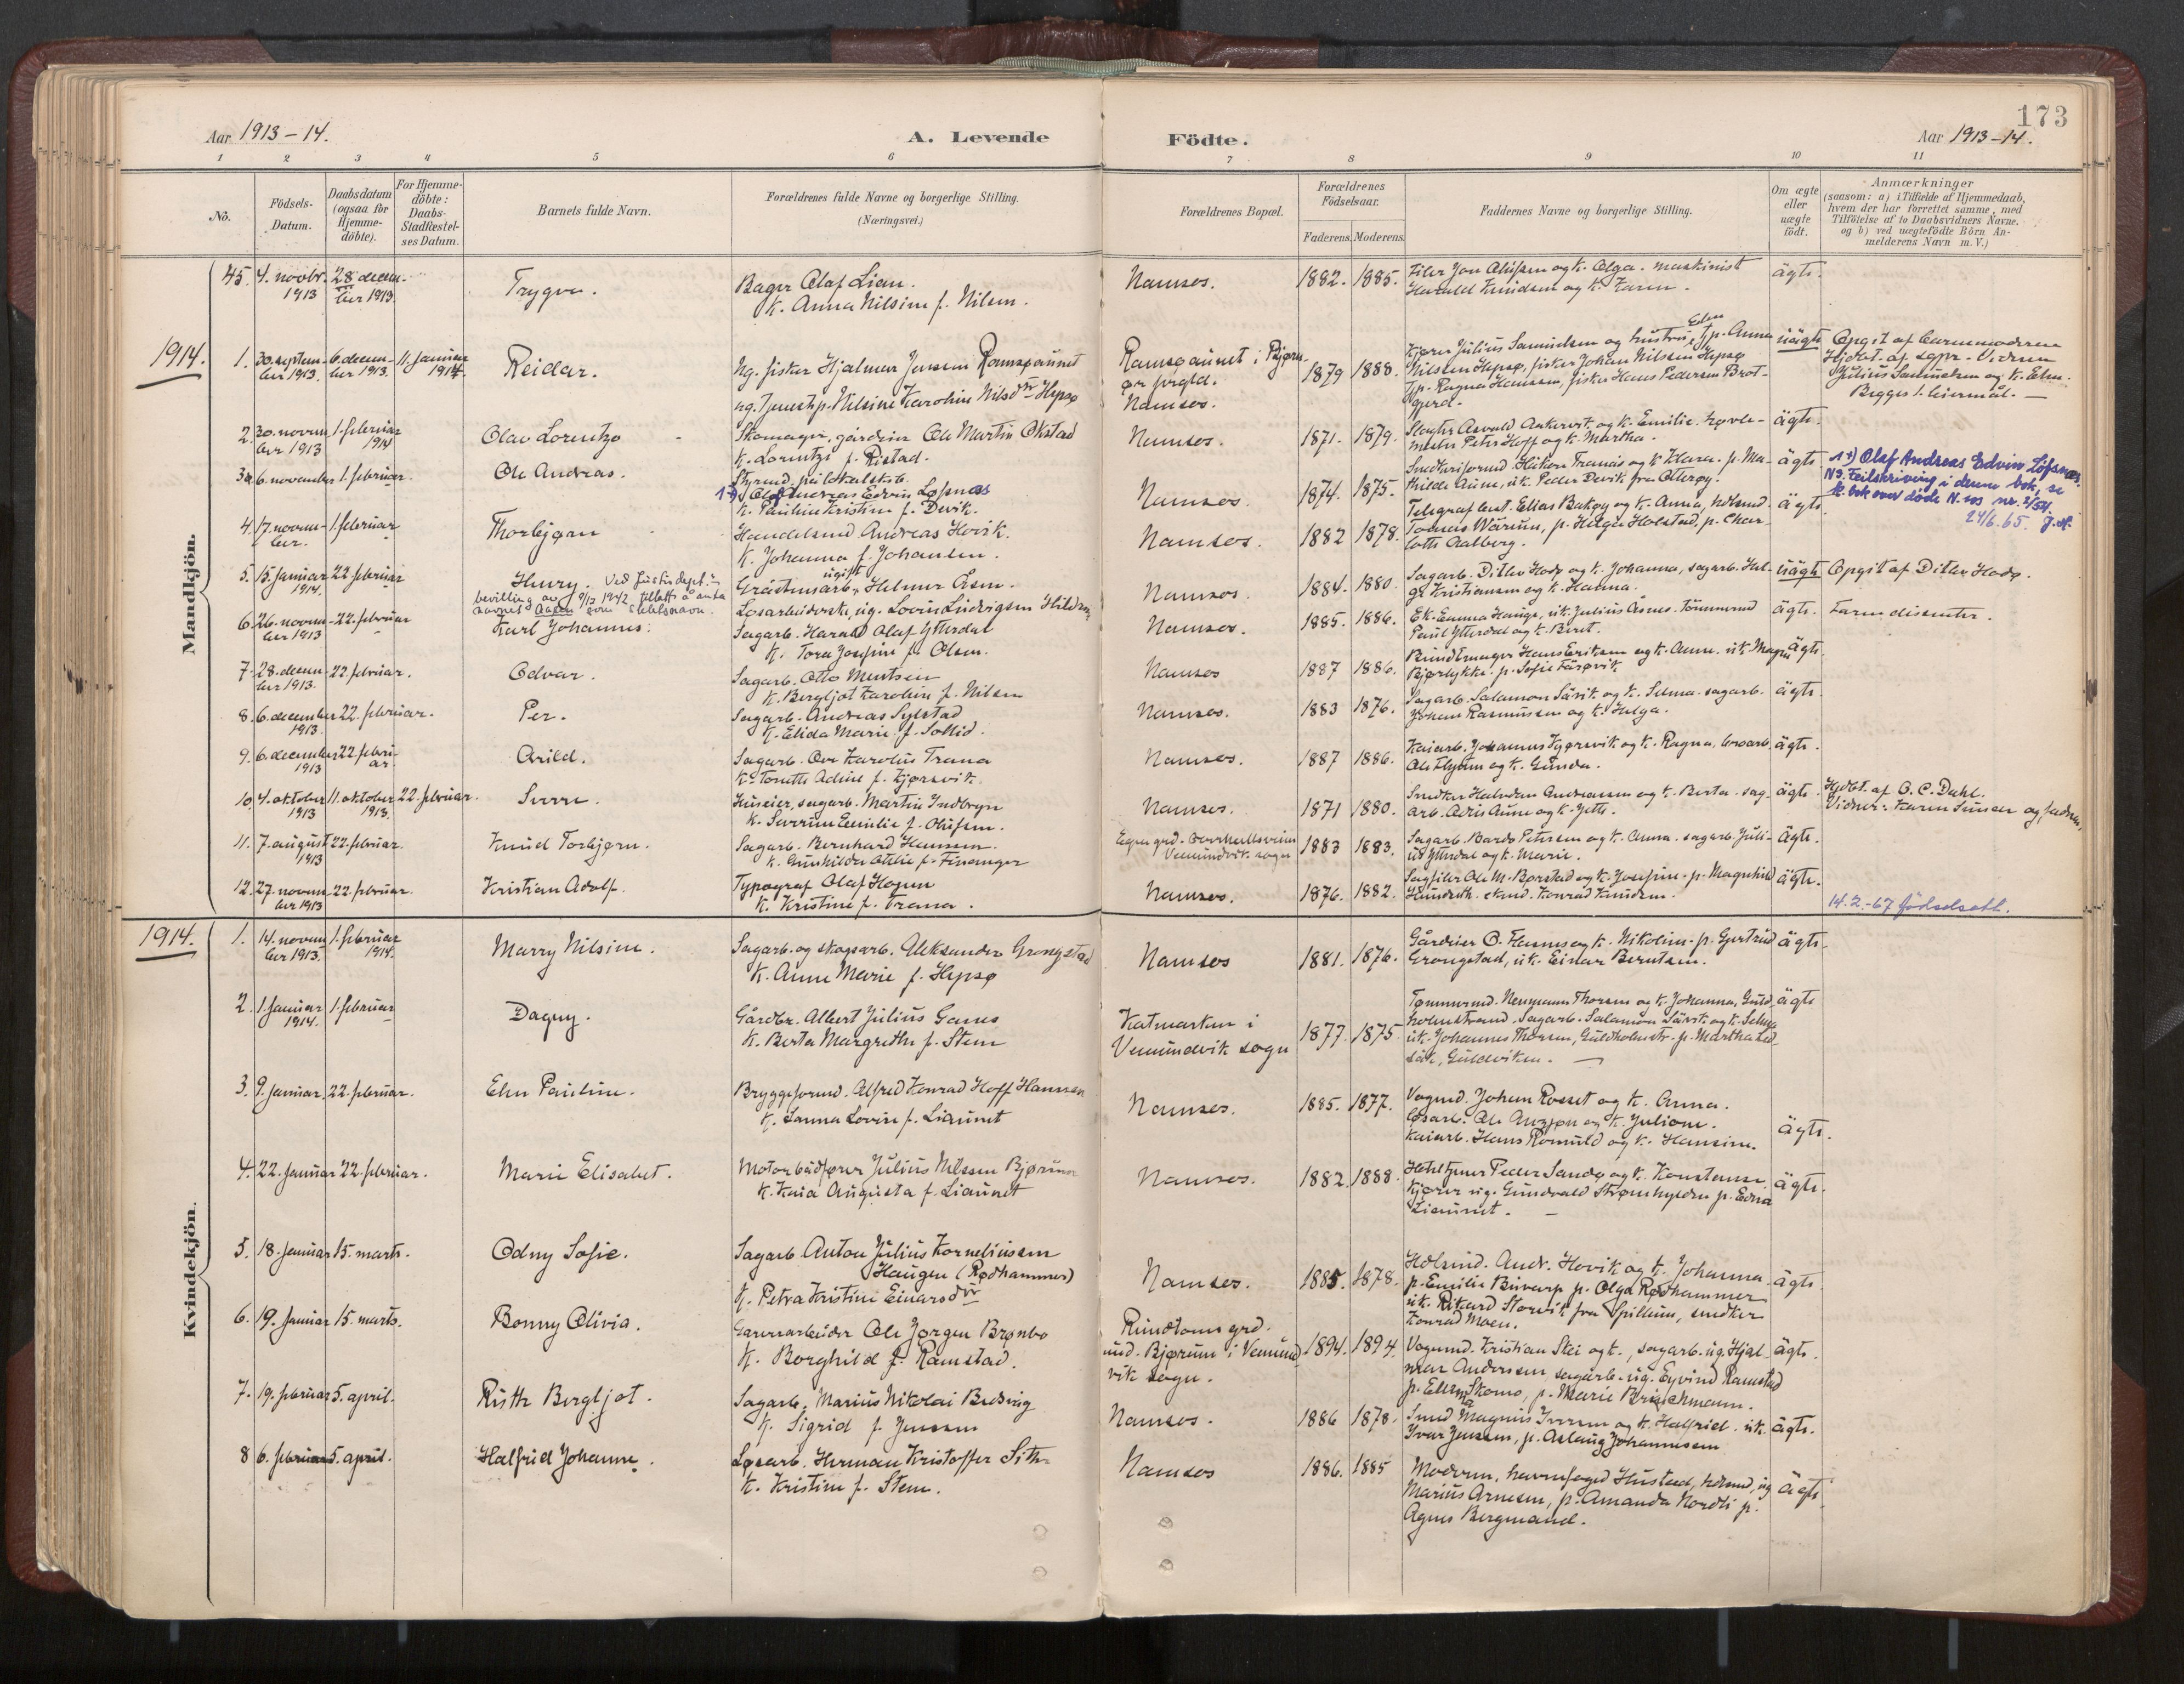 173
Aar 1913-14.
A. Levende
Födte.
Aar 1913-14.
1 2 3 4 5 6 7 8 9 10 11
No.
Födsels-
Datum.
Daabsdatum
(ogsaa for
Hjemme-
döbte).
For Hjemme-
döbte:
Daabs-
Stadfæstel-
ses Datum.
Barnets fulde Navn.
Forældrenes fulde Navne og borgerlige Stilling.
(Næringsvei.)
Forældrenes Bopæl.
Forældrenes
Födselsaar.
Faderens. Moderens.
Faddernes Navne og borgerlige Stilling.
Om ægte
eller
uægte
födt.
Anmærkninger
(saasom: a) i Tilfælde af Hjemmedaab,
hvem der har forrettet samme, med
Tilföielse af to Daabsvidners Navne.
og b) ved uægtefödte Börn An-
melderens Navn m. V.)
Mandkjön.
45. 4. novbr. 1913
28 decem-
ber 1913.
Trygve.
Bager Olaf Lian.
K. Anna Nilsine f. Nilsen.
Namsos.
1882. 1885.
Filer Jon Olufsen og k. Olga. maskinist
Harald Knudsen og k. Karen.
ägte.
1914.
1. 30. septem-
ber 1913.
6. decem-
ber 1913.
11. januar
1914.
Reidar.
Ug. fisker Hjalmar Jensen Ramsøaunet
ug. tjenestp. Nilsine Karoline Nilsdtr Hepsø
Ramsøaunet i Bjørn-
ør prgld.
Namsos.
1879 1888.
Kjører Julius Samuelsen og hustru Elen, tjp. Anna
Nilsen Hepsø, fisker Johan Nilssen Hepsø
Tjp. Ragna Hanssen, fisker Hans Pedersen Brat-
gjerd.
uägte
Opgit af barnemoderen
Hjdøbt. af sgpr. Vidner
Julius Samuelsen og k. Elen.
Begges 1. leiermål.
2. 30. novem-
ber 1913
1. februar
1914
Olav Lorentze
Skomager, gårdeier Ole Martin Okstad
K. Lorentze f. Ristad.
Namsos.
1871. 1879.
Slagter Asvald Ankervit og k. Emilie. høvle-
mester Peter Hoff og k. Martha.
ägte.
3. 6. november
1. februar.
Ole Andreas.
Styrmd. på lokalskib.
1+) Olaf Andreas Edvin Løfsnæs
K. Pauline Kristine f. Devik.
Namsos.
1874. 1875.
Smedkriformd. Håkon Tranås og k. Klara. p. Ma-
thilde Aune, uk. Peder Devik fra Otterøy.
ägte
1+) Olaf Andreas Edvin Löfsnæs.
NB. Feilskriving i denne bok, se
k. bok over døde N.sos nr. 2/54.
24/6. 65.
4. 17. novem-
ber.
1. februar
Thorbjørn
Handelsmd Andreas Hovik.
K. Johanna f. Johansen.
Namsos.
1882 1878.
Telegrafbest. Elias Bakøy og k. Anna, hdlsmd.
Tomas Wærum, p. Helga Holstad, p. Char-
lotte Aalberg.
ägte
5. 15. januar
1914.
22. februar
Henry. Ved Justisdept.s
bevilling av 9/12 1942 tillatt å anta
navnet Aasen som slektsnavn.
Gråstensarb. ugift Helmer Åsen.
Løsarbeiderske, ug. Lovin Ludvigsen Hildrem
Namsos.
1884. 1880.
Sagarb. Ditlev Hodø og k. Johanna, sagarb. Hel-
ge Kristiansen og k. Hanna.
uägte
Opgit af Ditlev Hodø.
6. 26. novem-
ber 1913
22. februar
Karl Johannes.
Sagarb. Harald Olaf Ytterdal
K. Tora Josefine f. Olsen.
Namsos.
1885. 1886.
Ek. Emma Hauge, uk. Julius Åsnes. Tömmermd
Paul Ytterdal og k. Beret.
ägte.
Faren dissenter.
7. 28. decem-
ber 1913.
22. februar.
Odvar.
Sagarb. Otto Mentsen
K. Bergljot Karoline f. Nilsen
Namsos
1887 1886.
Buntmager Hans Eriksen og k. Anne. uk Magne
Bjørlykke. p. Sofie Fårøvik
ägte.
8. 6. december
1913.
22. februar.
Per.
Sagarb. Andreas Sylstad
K. Elida Marie f. Sollid.
Namsos.
1883 1876.
Sagarb. Salamon Såvik og k. Selma. sagarb.
Johan Rasmussen og k. Helga.
ägte.
9. 6. december
1913
22. febru-
ar.
Arild.
Sagarb. Ove Karolius Trana
K. Torette Adine f. Kjørsvik.
Namsos.
1887 1886.
Kaiarb. Johannes Kjørsvik og k. Ragna, losarb.
Ole Flytum og k. Gunda.
ägte.
10. 4. oktober
1913
11. oktober
1913.
22. februar.
Sverre.
Huseier, sagarb. Martin Indbryn
K. Severine Emilie f. Olufsen.
Namsos.
1871 1880.
Smedker Halvdan Andreassen og k. Berta. sag-
arb. Edvin Aune og k. Jette.
ägte.
Hjdbt. af O. C. Dahl.
Vidner: Karen Sunde og faderen.
11. 7. august
1913
22. februar.
Knud Torbjørn.
Sagarb. Bernhard Hansen.
K. Gunhilda Otilie f. Finanger
Vemundvik sogn
1883 1883.
Sagarb. Bardo Petersen og k. Anna. sagarb. Juli-
us Ytterdal og k. Marie.
ägte.
12. 27. novem-
ber 1913
22. februar.
Kristian Adolf.
Typograf Olaf Hagen
K. Kristine f. Trana.
Namsos.
1876. 1882.
Sagfiler Ole M. Børstad og k. Josefine. p. Magnhild
Hundseth. stud. Konrad Knudsen.
ägte.
14.2.-67 fødselsatt.
Kvindekjön.
1914.
1. 14. novem-
ber 1913.
1. februar
1914.
Marry Nilsine.
Sagarb. og skogsarb. Aleksander Grongstad
K. Anne Marie f. Hepsø
Namsos
1881. 1876.
Gårdeier O. Hannes og k. Nikoline. p. Gjertrud
Grongstad, uk. Einar Berntsen.
ägte.
2. 1. januar
1914.
1. februar
Dagny.
Gårdbr. Albert Julius Ganes
K. Berta Margrethe f. Sten
Katmarken i
Vemundvik sogn
1877. 1875
Tømmermd. Neumann Thorsen og k. Johanna, Guld-
holmstrand. Sagarb. Salamon Såvik og k. Selma
uk. Johannes Thorsen, Guldholmstr. p. Martha Sed-
såk, Guldviken.
ägte
3. 9. januar.
22. februar.
Elen Pauline.
Bryggeformd. Alfred Konrad Hoff Hanssen
K. Sanna Lovise f. Liaunet
Namsos.
1885. 1877.
Vognmd. Johan Rosset og k. Anna.
Løsarb. Ole Anzjøn og k. Juliane.
Kaiarb. Hans Romuld og k. Hansine.
ägte.
4. 22. januar
22. februar.
Marie Elisabet.
Motorbådfører Julius Nilssen Bjørum
K. Kaia Augusta f. Liaunet
Namsos.
1882. 1888.
Peder Sandø og k. Konstanse.
Kjører ug. Gundvald Strømhylden p. Edna
Liaunet.
ägte.
5. 18. januar
15. marts.
Odny Sofie.
Sagarb Anton Julius Korneliussen
Haugen (Rødhammer)
K. Petra Kristine Einarsdtr
Namsos.
1885. 1878.
Hdlsmd. Andr. Hovik og k. Johanna.
p. Emilie Buvarp p. Olga Rødhammer
uk. Rikard Storvik fra Spillum, smedker
Konrad Moen.
ägte
6. 19. januar
15. marts.
Bonny Olivia.
Garveriarbeider Ole Jørgen Brønbo
K. Borghild f. Ramstad.
Rundtoms grd.
und. Bjørum i Vemund-
vik sogn.
1894. 1894.
Vognmd. Kristian Skei og k., sagarb. ug. Hjal-
mar Anderssen, sagarb. ug. Eyvind Ramstad
p. Ellen Skomo, p. Marie Brüchmann.
ägte.
7. 19. februar
5. april.
Ruth Bergljot.
Sagarb. Marius Nikolai Budsvig
K. Sigrid f. Jensen
Namsos.
1886 1878.
Smed Magnus Iversen og k. Halfrid. uk.
Ivar Jensen, p. Aslaug Johannessen
ägte.
8 6. februar
5. april.
Halfrid Johanne.
Løsarb. Herman Kristoffer Sith
K. Kristine f. Sten.
Namsos
1886. 1885
Moderen, havnefoged Hustad, hdlsmd, ug
Marius Arnesen, p. Amanda Nordli p.
Agnes Bergmand.
ägte